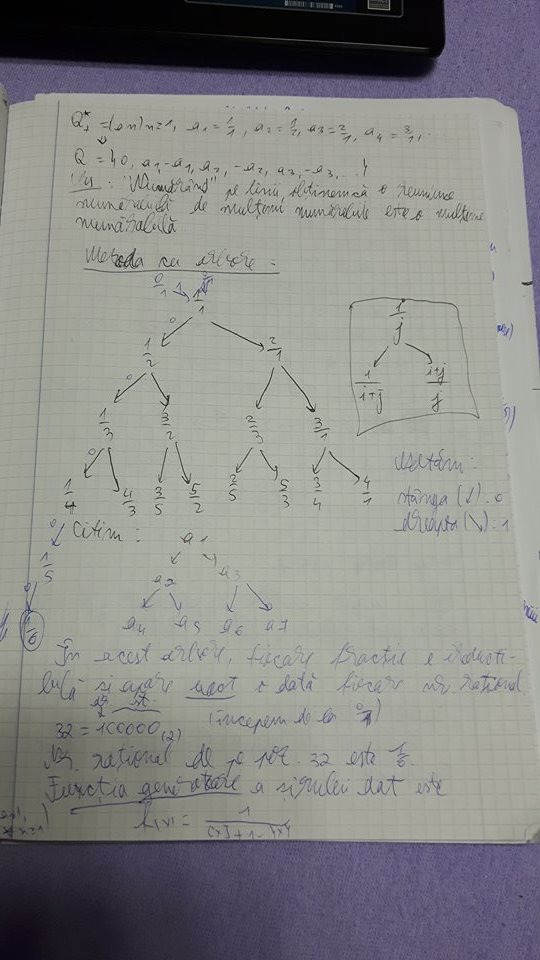 Q*₊ = {aₙ | n≥1, a₁ = 1/1, a₂ = 1/2, a₃ = 2/1, a₄ = 3/1,
Q = {0, a₁, -a₁, a₂, -a₂, a₃, -a₃, ...}
: "Numărând" pe linii, obținem că o reuniune
numărabilă de mulțimi numărabile este o mulțime
numărabilă
Metoda cu arbore:
0/1 1 1/1
0
1/2 2/1
0
1/3 3/2 2/3 3/1
0
1/4 4/3 3/5 5/2 2/5 5/3 3/4 4/1
0
1/5
0
1/6
j
1/1+j i+j/j
Notăm:
stânga (↙): 0
dreapta (↘): 1
Citim:
a1
a2 a3
a4 a5 a6 a7
În acest arbore, fiecare fracție e ireducti-
bilă și apare exact o dată fiecare nr rațional
dr. st.
32 = 100000(2) (începem de la 0/1)
Nr. rațional de pe poz. 32 este 1/6.
Funcția generatoare a șirului dat este
f(x) = 1/[x]+1-{x}